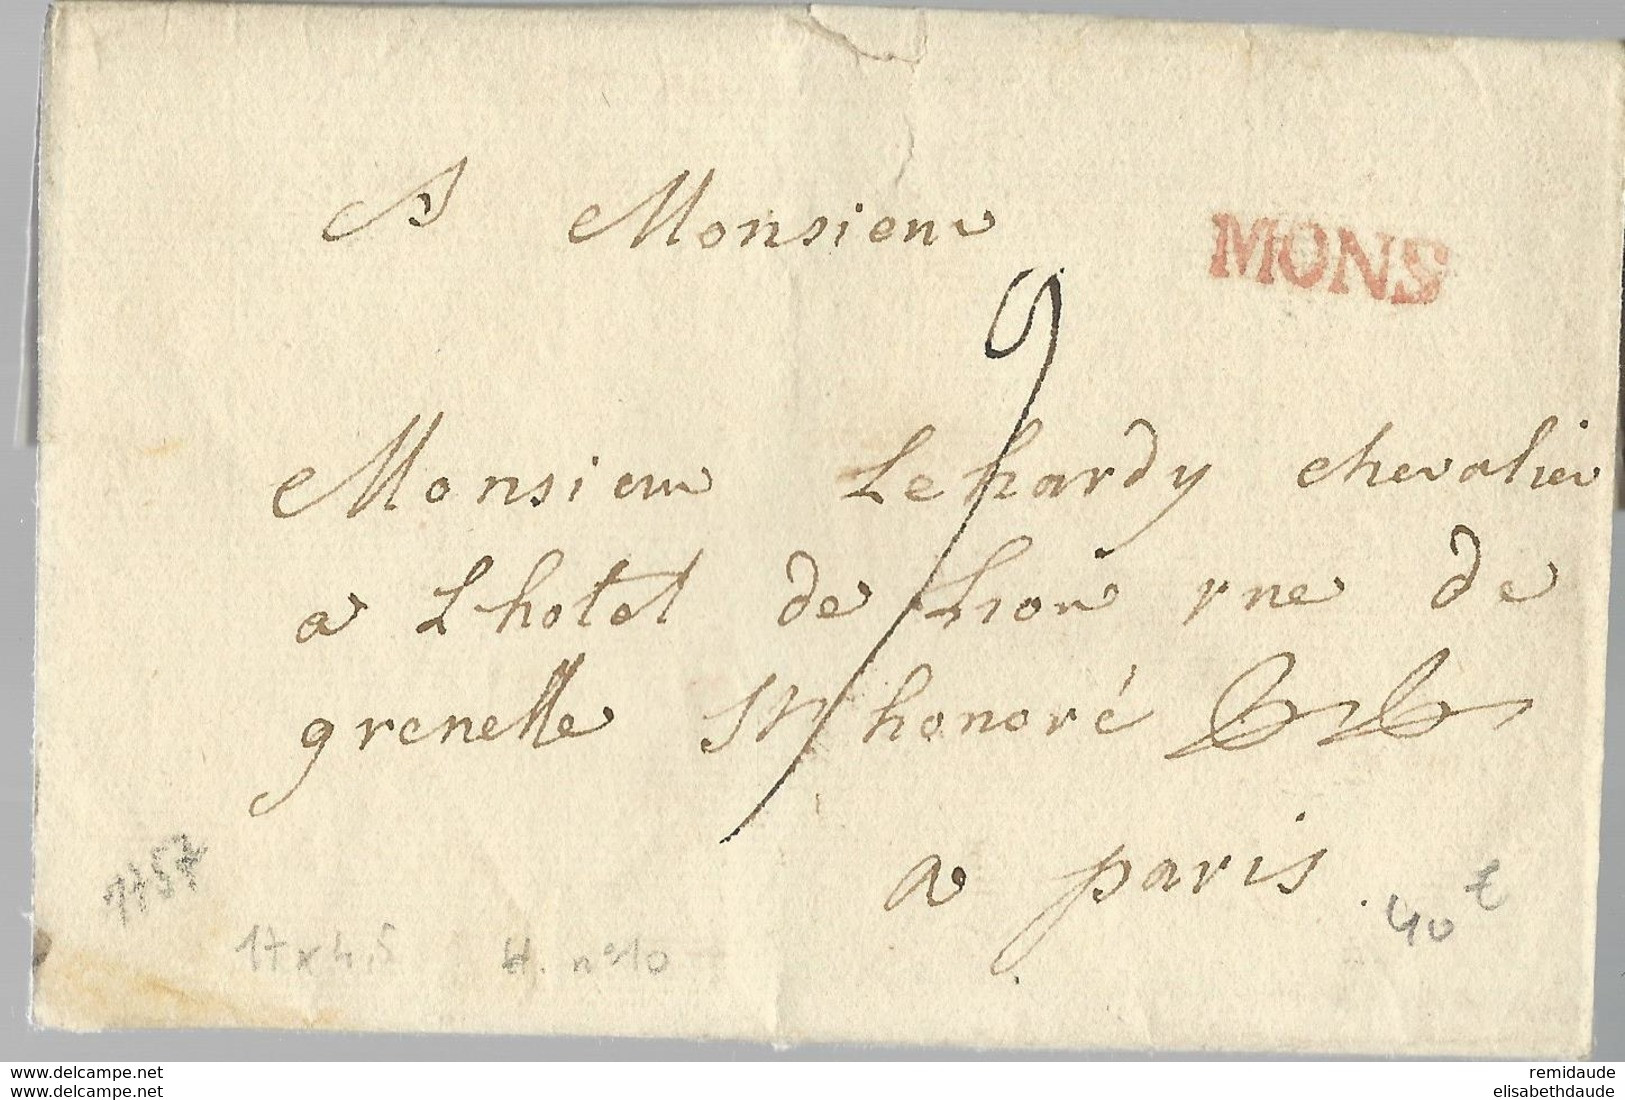 A Monsieur
MONS
9
Monsieur Lehardy chevalier
a Lhotel de Lion rue de
grenelle St honoré
a paris
1757
17 x 4,5 H. n°10
40 €
www.delcampe.net remidaude
www.delcampe.net elisabethdaude